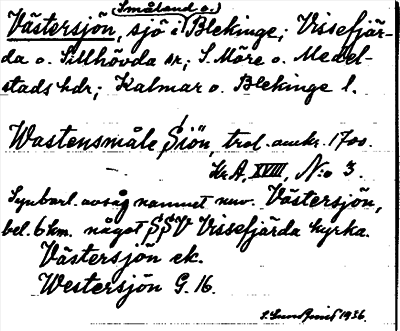 (Småland o.)
Västersjön, sjö i Blekinge; Vissefjär-
da o. Sillhövda sr; S. Möre o. Medel-
stads hdr; Kalmar o. Blekinge l.
Wastensmåle Siön, trol. omkr. 1700.
Kr A, XVIII, N:o 3.
Synbarl. avsåg namnet nuv. Västersjön,
bel. 6 km. något SSV Vissefjärda kyrka.
Västersjön ek.
Westersjön G. 16.
1936.